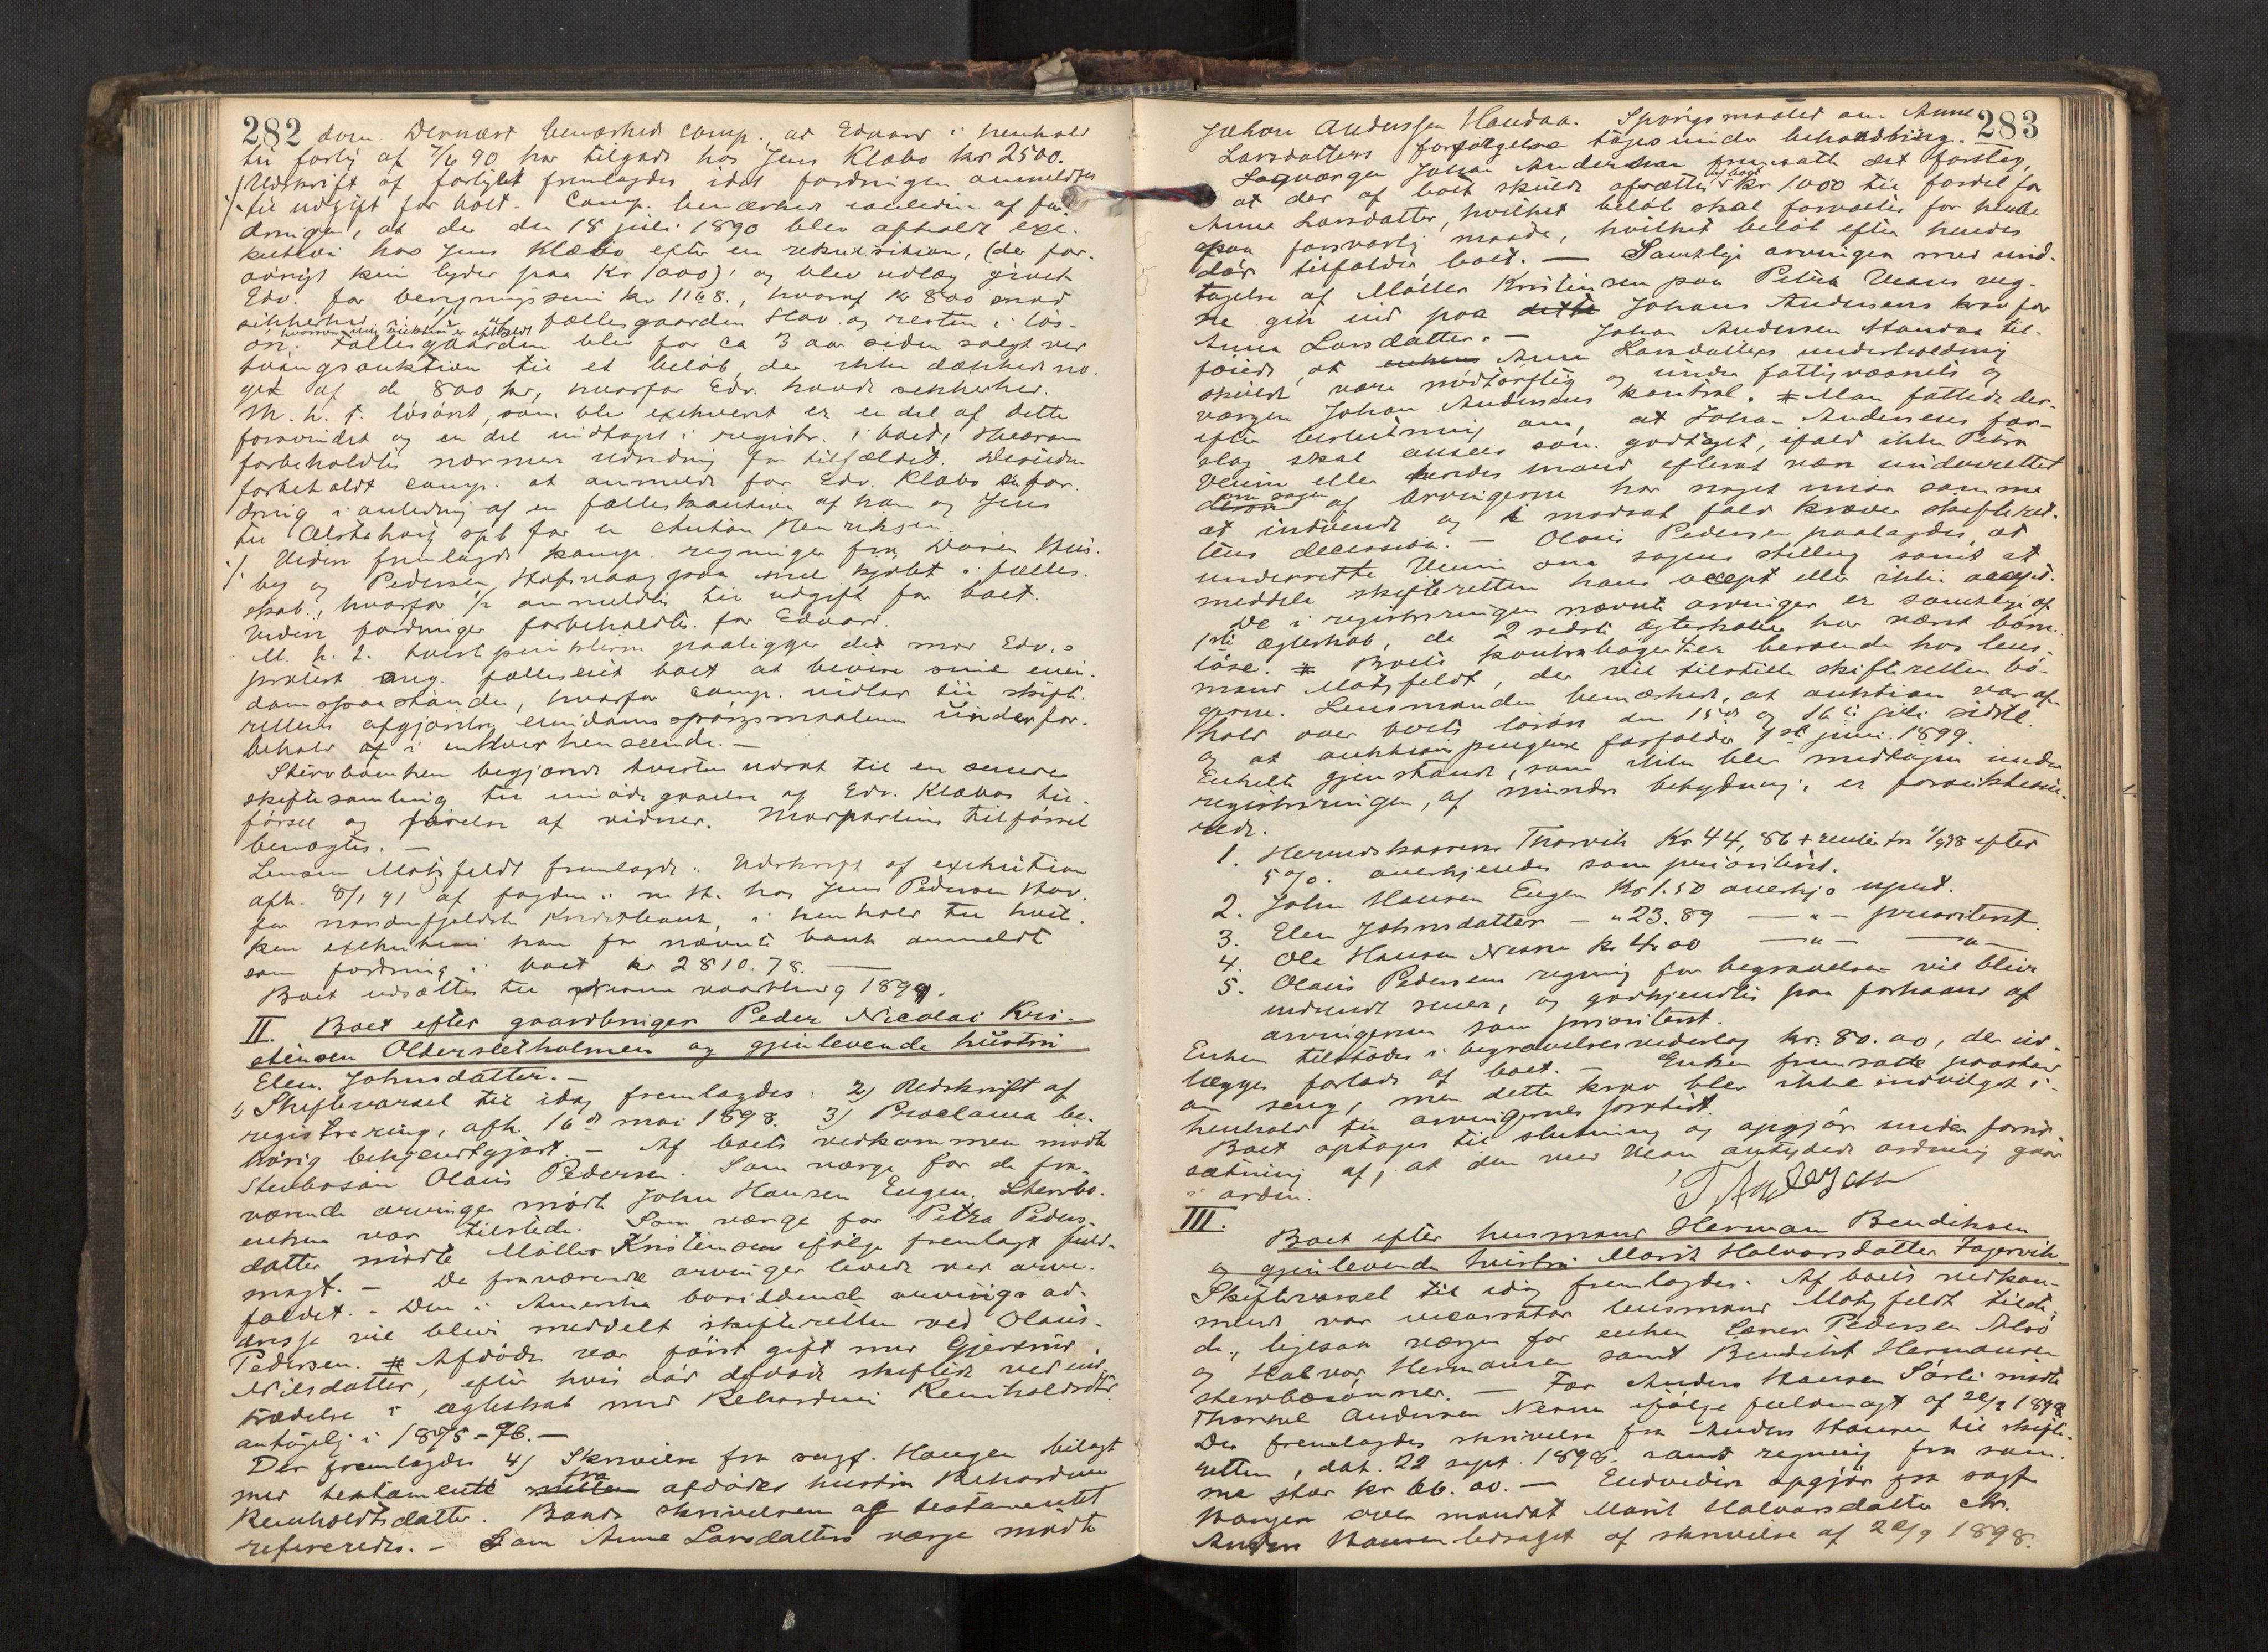 282 dom. Dernæst bemærked comp., at Edvard i henhold
til forlig af 7/6 90 har tilgode hos Jens Klæbo kr 2500.
Udskrift af forliget fremlagdes idet fordringen anmeldtes
·/· til udgift for boet. Comp. bemærked i anledn af for-
dringen, at der den 18 juli 1890 blev afholdt exe-
kution hos Jens Klæbo efter en rekvisition, (der for-
øvrigt kun lyder paa Kr 1000), og blev udlæg givet
Edv. for betegningssum kr 1168., hvoraf kr 800 mod
sikkerhed i 1/2 af fællesgaarden Hov og resten i løs-
hvorom ny auktion er afholdt
øre. Fællesgaarden blev for ca 3 aar siden solgt ved
tvangsauktion til et beløb, der ikke dækked no-
get af de 800 kr, hvorfor Edv. havde sikkerhed.
M. h. t. løsøret, som blev exekveret er en del af dette
forsvundet og en del indtaget i registr. i boet, Hvorom
forbeholdtes nærmere udredning for tilfældet. Desuden
forbeholdt comp. at anmelde for Edv. Klæbo en for-
dring i anledning af en fælleskaution af ham og Jens
til Alstahoug spb for en Anton Henriksen.
·/· Videre fremlagde komp. regninger fra Weis-
by og Pedersen, Hofsvaag paa mel kjøbt i fælles-
skab, hvorfor 1/2 anmeldtes til udgift for boet.
Videre fordringer forbeholdtes for Edvard.
M. h. t. tvistpunkterne paaligger det mod Edv.s
protest ang. fælleseiet boet at bevise sine eien-
domspaastande, hvorfor comp. indlod til skifte-
rettens afgjørelse eiendomsspørgsmaalene under for-
behold af i enhver henseende. —
Stervboenken begjærede tvisten udsat til en senere
skiftesamling til imødegaaelse af Edv. Klæbos til-
førsel og førelse af vidner. Modpartens tilførsel
benægtes. —
Lensm Motzfeldt fremlagde: Udskrift af exekution
afh. 8/1 91 af fogden i n. H. hos Jens Pedersen Hov
for nordenfjeldske Kreditbank, i henhold til hvil-
ken exekution han for nævnte bank anmeldte
som fordring i boet kr 2810.78. —
Boet udsættes til Nesna vaarthing 1899.
II. Boet efter gaardbruger Peder Nicolai Kri-
stensen Oldersletholmen og gjenlevende hustru
Elen Johnsdatter. —
1) Skiftevarsel til idag fremlagdes: 2) Udskrift af
registrering, afh. 16de mai 1898. 3) Proclama be-
hørig bekjendtgjort. — Af boets vedkommende mødte
Stervbosøn Olaus Pedersen. Som værge for de fra-
værende arvinger mødte John Hansen Engen. Stervbo-
enken var tilstede. Som værge for Petra Peders-
datter mødte Møller Kristensen ifølge fremlagt fuld-
magt. — De fraværende arvinger levede ved arve-
faldet. - Den i Amerika boesiddende arvings ad-
dresse vil blive meddelt skifteretten ved Olaus
Pedersen. # Afdøde var først gift med Gjertrud
Nilsdatter, efter hvis død afdøde skiftede ved ind-
trædelse i ægteskab med Rehardine Reinholdsdtr,
antagelig i 1875-76. —
Der fremlagdes 4) Skrivelse fra sagf. Haugen bilagt
med testamente fra afdødes hustru Rehardine
Reinholdtsdatter. Baade skrivelsen og testamentet
refereredes. — Som Anne Larsdatters værge mødte
283
Johan Andersen Handaa. Spørgsmaalet om Anne
Larsdatters forsørgelse toges under behandling.
Lagværgen Johan Andersen fremsatte det forslag,
at der af boet skulde afsættes kr 1000 til fordel for
Anne Larsdatter, hvilket beløb skal forvaltes for hende
paa forsvarlig maade, hvilket beløb efter hendes
død tilfalder boet. — Samtlige arvinger med und-
tagelse af Møller Kristensen paa Petra Veums veg-
ne gik ind paa Johans Andersens krav for
Anna Larsdatter. — Johan Andersen Handaa til-
føiede, at Anne Larsdatters underholdning
skulde være nødtørftig og under fattigvæsenets og
værgen Johan Andersens kontrol. # Man fattede der-
efter beslutning om, at Johan Andersens for-
slag skal ansees som godtaget, ifald ikke Petra
Veum eller hendes mand efterat være underrettet
om sagen af arvingerne har noget imod samme
at indvende og i modsat fald kræver skifteret-
tens decision. — Olaus Pedersen paalagdes, at
underrette Veum om sagens stilling samt at
meddele skifteretten hans accept eller ikke accept.
De i registreringen nævnte arvinger er samtlige af
1ste ægteskab, de 2 sidste ægteskaber har været børn-
løse. # Boets kontrabøger er beroende hos lens-
mand Motzfeldt, der vil tilstille skifteretten bø-
gerne. Lensmanden bemærked, at auktion var af-
holdt over boets løsøre den 15de og 16de juli sidstl.
og at auktionspengene forfalder 1ste juni 1899.
Enkelte gjenstande, som ikke blev medtagen under
registreringen, af mindre betydning, er forauktione-
rede.
1. Herredskasserer Thorvik Kr 44,86 + renter fra 1/9 98 efter
5%. anerkjendes som prioriteret.
2. John Hansen Engen Kr 1.50 anerkjs uprt.
3. Elen Johnsdatter — „ 23.89 — „ — prioriteret.
4. Ole Hansen Nesna kr 4.00 — „ — — „ —
5. Olaus Pedersens regning for begravelsen vil blive
indsendt senere, og godkjendtes paa forhaand af
arvingerne som prioriteret.
Enken tilstodes i begravelsesvederlag kr. 80.00, der ud-
lægges forlods af boet. — Enken fremsatte paastand
om seng, men dette krav blev ikke indvilget i
henhold til arvingernes protest.
Boet optages til slutning og opgjør under forud-
sætning af, at den med Veum antydede ordning gaar
i orden.
III.
Boet efter husmand Herman Bendiksen
og gjenlevende hustru Marit Halvorsdatter Fagervik
Skiftevarsel til idag fremlagdes. Af boets vedkom-
mende var incassator lensmand Motzfeldt tilste-
de, ligesaa værgen for enken Lorens Pedersen Alsø
og Halvor Hermansen samt Bendikt Hermansen
stervbosønner. — For Anders Hansen Sørli mødte
Thorvel Andersen Nesna ifølge fuldmagt af 22/9 1898
Der fremlagdes skrivelse fra Anders Hansen til skifte-
retten, dat. 22 sept. 1898. samt regning fra sam-
me stor kr 66.00. — Endvidere opgjør fra sagf
Haugen over mandat Marit Halvorsdatter ctr.
Anders Hansen ledsaget af skrivelse af 22/9 1898.